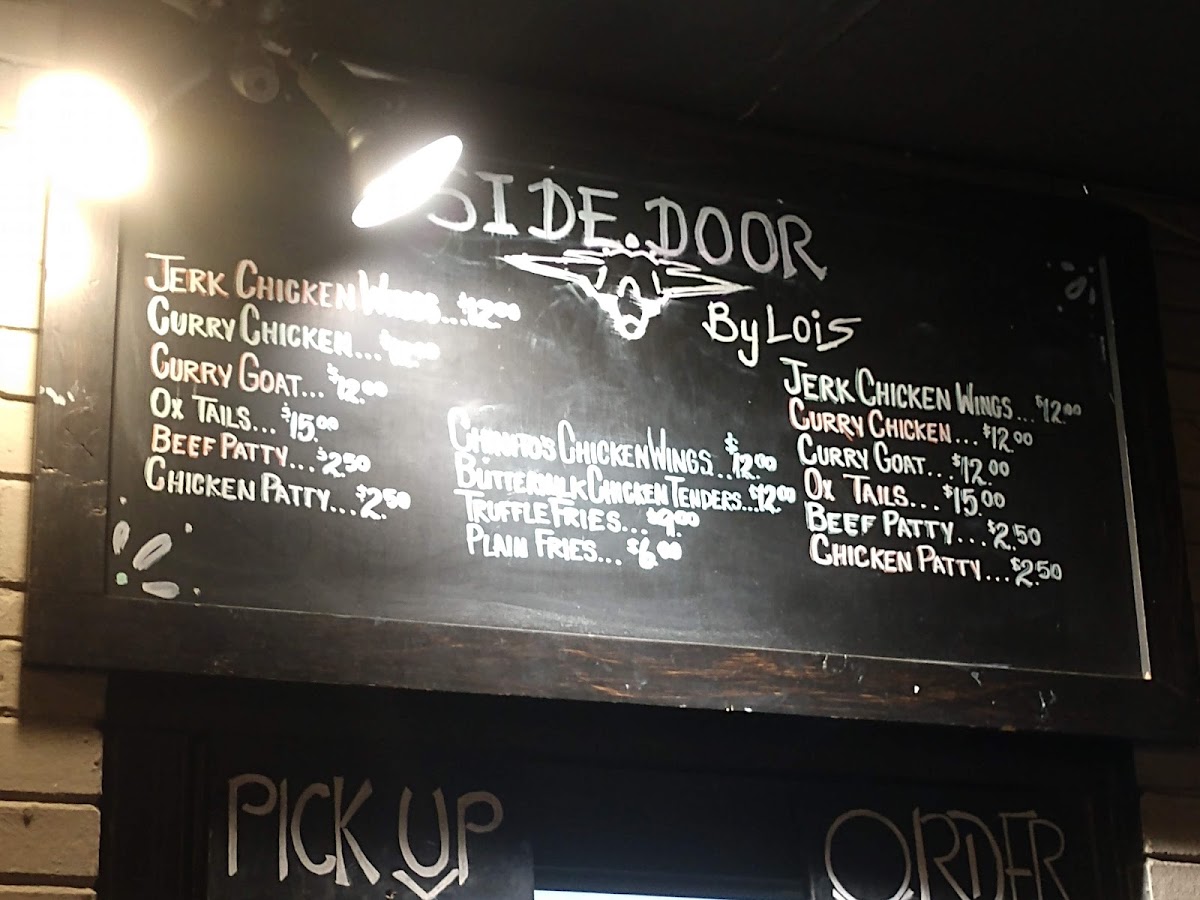 SIDE.DOOR
By Lois
JERK CHICKEN WINGS...$12.00
CURRY CHICKEN...
CURRY GOAT...$12.00
OX TAILS...$15.00
BEEF PATTY...$2.50
CHICKEN PATTY...$2.50
CHICKEN WINGS...$12.00
BUTTERMILK CHICKEN TENDERS...$12.00
TRUFFLE FRIES...$9.00
PLAIN FRIES...$6.00
JERK CHICKEN WINGS...$12.00
CURRY CHICKEN...$12.00
CURRY GOAT...$12.00
OX TAILS...$15.00
BEEF PATTY...$2.50
CHICKEN PATTY...$2.50
PICK UP
ORDER